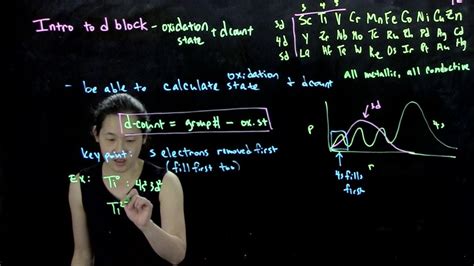 Intro to d block - oxidation state + d count
- be able to calculate oxidation state + d count
d-count = group# - ox.st
key point: s electrons removed first
(fill first too)
Ex: Ti⁰ : 4s²3d²
Ti²
3 4 5
3d Sc Ti V Cr Mn Fe Co Ni Cu Zn
4d Y Zr Nb Mo Tc Ru Rh Pd Ag Cd
5d La Hf Ta W Re Os Ir Pt Au Hg
all metallic, all conductive
P
3d
4s
r
4s fills
first